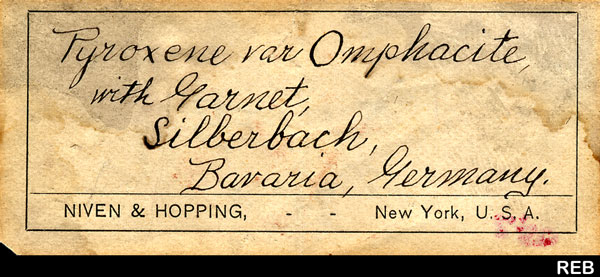 Pyroxene var Omphacite,
with Garnet,
Silberbach,
Bavaria, Germany.
NIVEN & HOPPING, - - New York, U. S. A.
REB